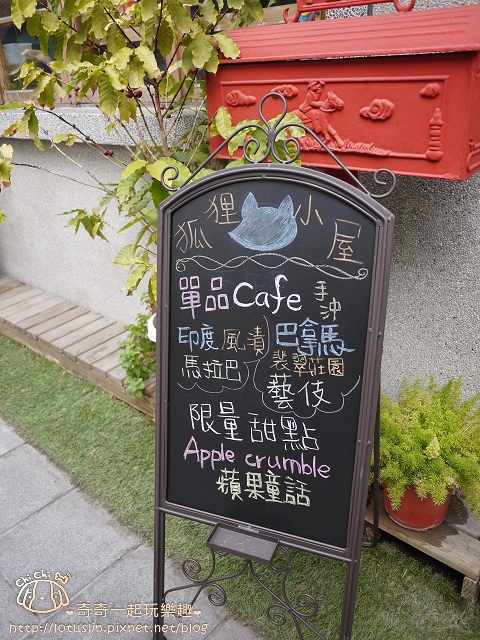 狐狸小屋
單品 Cafe 手沖
印度 風漬
馬拉巴
巴拿馬
翡翠莊園
藝伎
限量甜點
Apple crumble
蘋果童話
Chi Chi
奇奇一起玩樂趣
http://lotuslin.pixnet.net/blog